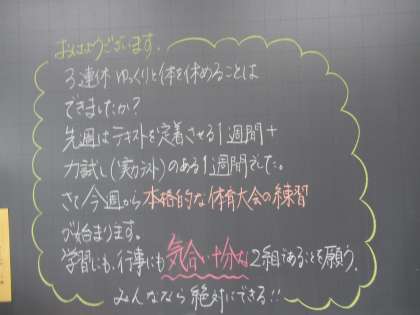 おはようございます。
3連休ゆっくりと体を休めることは
できましたか?
先週はテキストを定着させる1週間+
力試し(実力テスト)のある1週間でした。
さて今週から本格的な体育大会の練習
が始まります。
学習にも、行事にも気合い十分な2組であることを願う。
みんななら絶対にできる!!